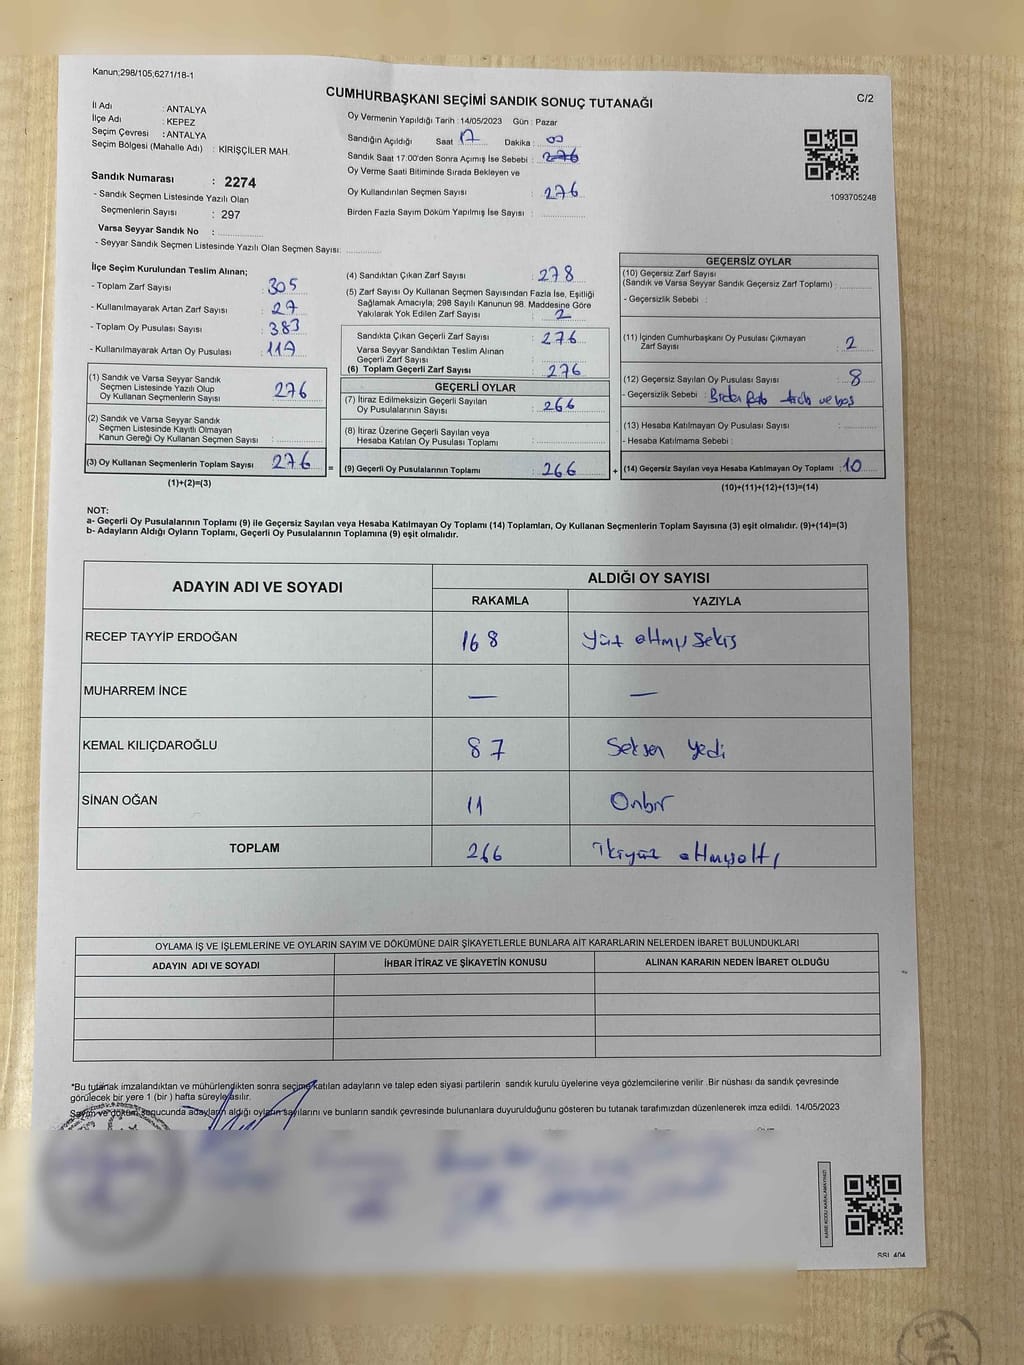 Kanun;298/105,6271/18-1
CUMHURBAŞKANI SEÇİMİ SANDIK SONUÇ TUTANAĞI
C/2
İl Adı : ANTALYA
İlçe Adı : KEPEZ
Seçim Çevresi : ANTALYA
Seçim Bölgesi (Mahalle Adı) : KİRİŞÇİLER MAH.
Sandık Numarası : 2274
- Sandık Seçmen Listesinde Yazılı Olan
Seçmenlerin Sayısı : 297
Varsa Seyyar Sandık No :
- Seyyar Sandık Seçmen Listesinde Yazılı Olan Seçmen Sayısı:
Oy Vermenin Yapıldığı Tarih : 14/05/2023 Gün : Pazar
Sandığın Açıldığı Saat 17 Dakika : 00
Sandık Saat 17:00'den Sonra Açımış İse Sebebi : 276
Oy Verme Saati Bitiminde Sırada Bekleyen ve
Oy Kullandırılan Seçmen Sayısı : 276
Birden Fazla Sayım Döküm Yapılmış İse Sayısı :
1093705248
İlçe Seçim Kurulundan Teslim Alınan;
- Toplam Zarf Sayısı : 305
- Kullanılmayarak Artan Zarf Sayısı : 27
- Toplam Oy Pusulası Sayısı : 383
- Kullanılmayarak Artan Oy Pusulası : 117
(1) Sandık ve Varsa Seyyar Sandık
Seçmen Listesinde Yazılı Olup
Oy Kullanan Seçmenlerin Sayısı : 276
(2) Sandık ve Varsa Seyyar Sandık
Seçmen Listesinde Kayıtlı Olmayan
Kanun Gereği Oy Kullanan Seçmen Sayısı :
(3) Oy Kullanan Seçmenlerin Toplam Sayısı 276
(1)+(2)=(3)
(4) Sandıktan Çıkan Zarf Sayısı : 278
(5) Zarf Sayısı Oy Kullanan Seçmen Sayısından Fazla İse, Eşitliği
Sağlamak Amacıyla; 298 Sayılı Kanunun 98. Maddesine Göre
Yakılarak Yok Edilen Zarf Sayısı : 2
Sandıkta Çıkan Geçerli Zarf Sayısı : 276
Varsa Seyyar Sandıktan Teslim Alınan
Geçerli Zarf Sayısı :
(6) Toplam Geçerli Zarf Sayısı : 276
GEÇERLİ OYLAR
(7) İtiraz Edilmeksizin Geçerli Sayılan
Oy Pusulalarının Sayısı : 266
(8) İtiraz Üzerine Geçerli Sayılan veya
Hesaba Katılan Oy Pusulası Toplamı :
= (9) Geçerli Oy Pusulalarının Toplamı : 266
GEÇERSİZ OYLAR
(10) Geçersiz Zarf Sayısı
(Sandık ve Varsa Seyyar Sandık Geçersiz Zarf Toplamı) :
- Geçersizlik Sebebi :
(11) İçinden Cumhurbaşkanı Oy Pusulası Çıkmayan
Zarf Sayısı : 2
(12) Geçersiz Sayılan Oy Pusulası Sayısı : 8
- Geçersizlik Sebebi :
(13) Hesaba Katılmayan Oy Pusulası Sayısı :
- Hesaba Katılmama Sebebi :
+ (14) Geçersiz Sayılan veya Hesaba Katılmayan Oy Toplamı : 10
(10)+(11)+(12)+(13)=(14)
NOT:
a- Geçerli Oy Pusulalarının Toplamı (9) ile Geçersiz Sayılan veya Hesaba Katılmayan Oy Toplamı (14) Toplamları, Oy Kullanan Seçmenlerin Toplam Sayısına (3) eşit olmalıdır. (9)+(14)=(3)
b- Adayların Aldığı Oyların Toplamı, Geçerli Oy Pusulalarının Toplamına (9) eşit olmalıdır.
ADAYIN ADI VE SOYADI ALDIĞI OY SAYISI
RAKAMLA YAZIYLA
RECEP TAYYİP ERDOĞAN 168 Yüz altmış sekiz
MUHARREM İNCE — —
KEMAL KILIÇDAROĞLU 87 Seksen Yedi
SİNAN OĞAN 11 Onbir
TOPLAM 266 İkiyüz altmışaltı
OYLAMA İŞ VE İŞLEMLERİNE VE OYLARIN SAYIM VE DÖKÜMÜNE DAİR ŞİKAYETLERLE BUNLARA AİT KARARLARIN NELERDEN İBARET BULUNDUKLARI
ADAYIN ADI VE SOYADI İHBAR İTİRAZ VE ŞİKAYETİN KONUSU ALINAN KARARIN NEDEN İBARET OLDUĞU
*Bu tutanak imzalandıktan ve mühürlendikten sonra seçime katılan adayların ve talep eden siyasi partilerin sandık kurulu üyelerine veya gözlemcilerine verilir .Bir nüshası da sandık çevresinde
görülecek bir yere 1 (bir ) hafta süreyle asılır.
Sayım ve döküm sonucunda adayların aldığı oyların sayılarını ve bunların sandık çevresinde bulunanlara duyurulduğunu gösteren bu tutanak tarafımızdan düzenlenerek imza edildi. 14/05/2023